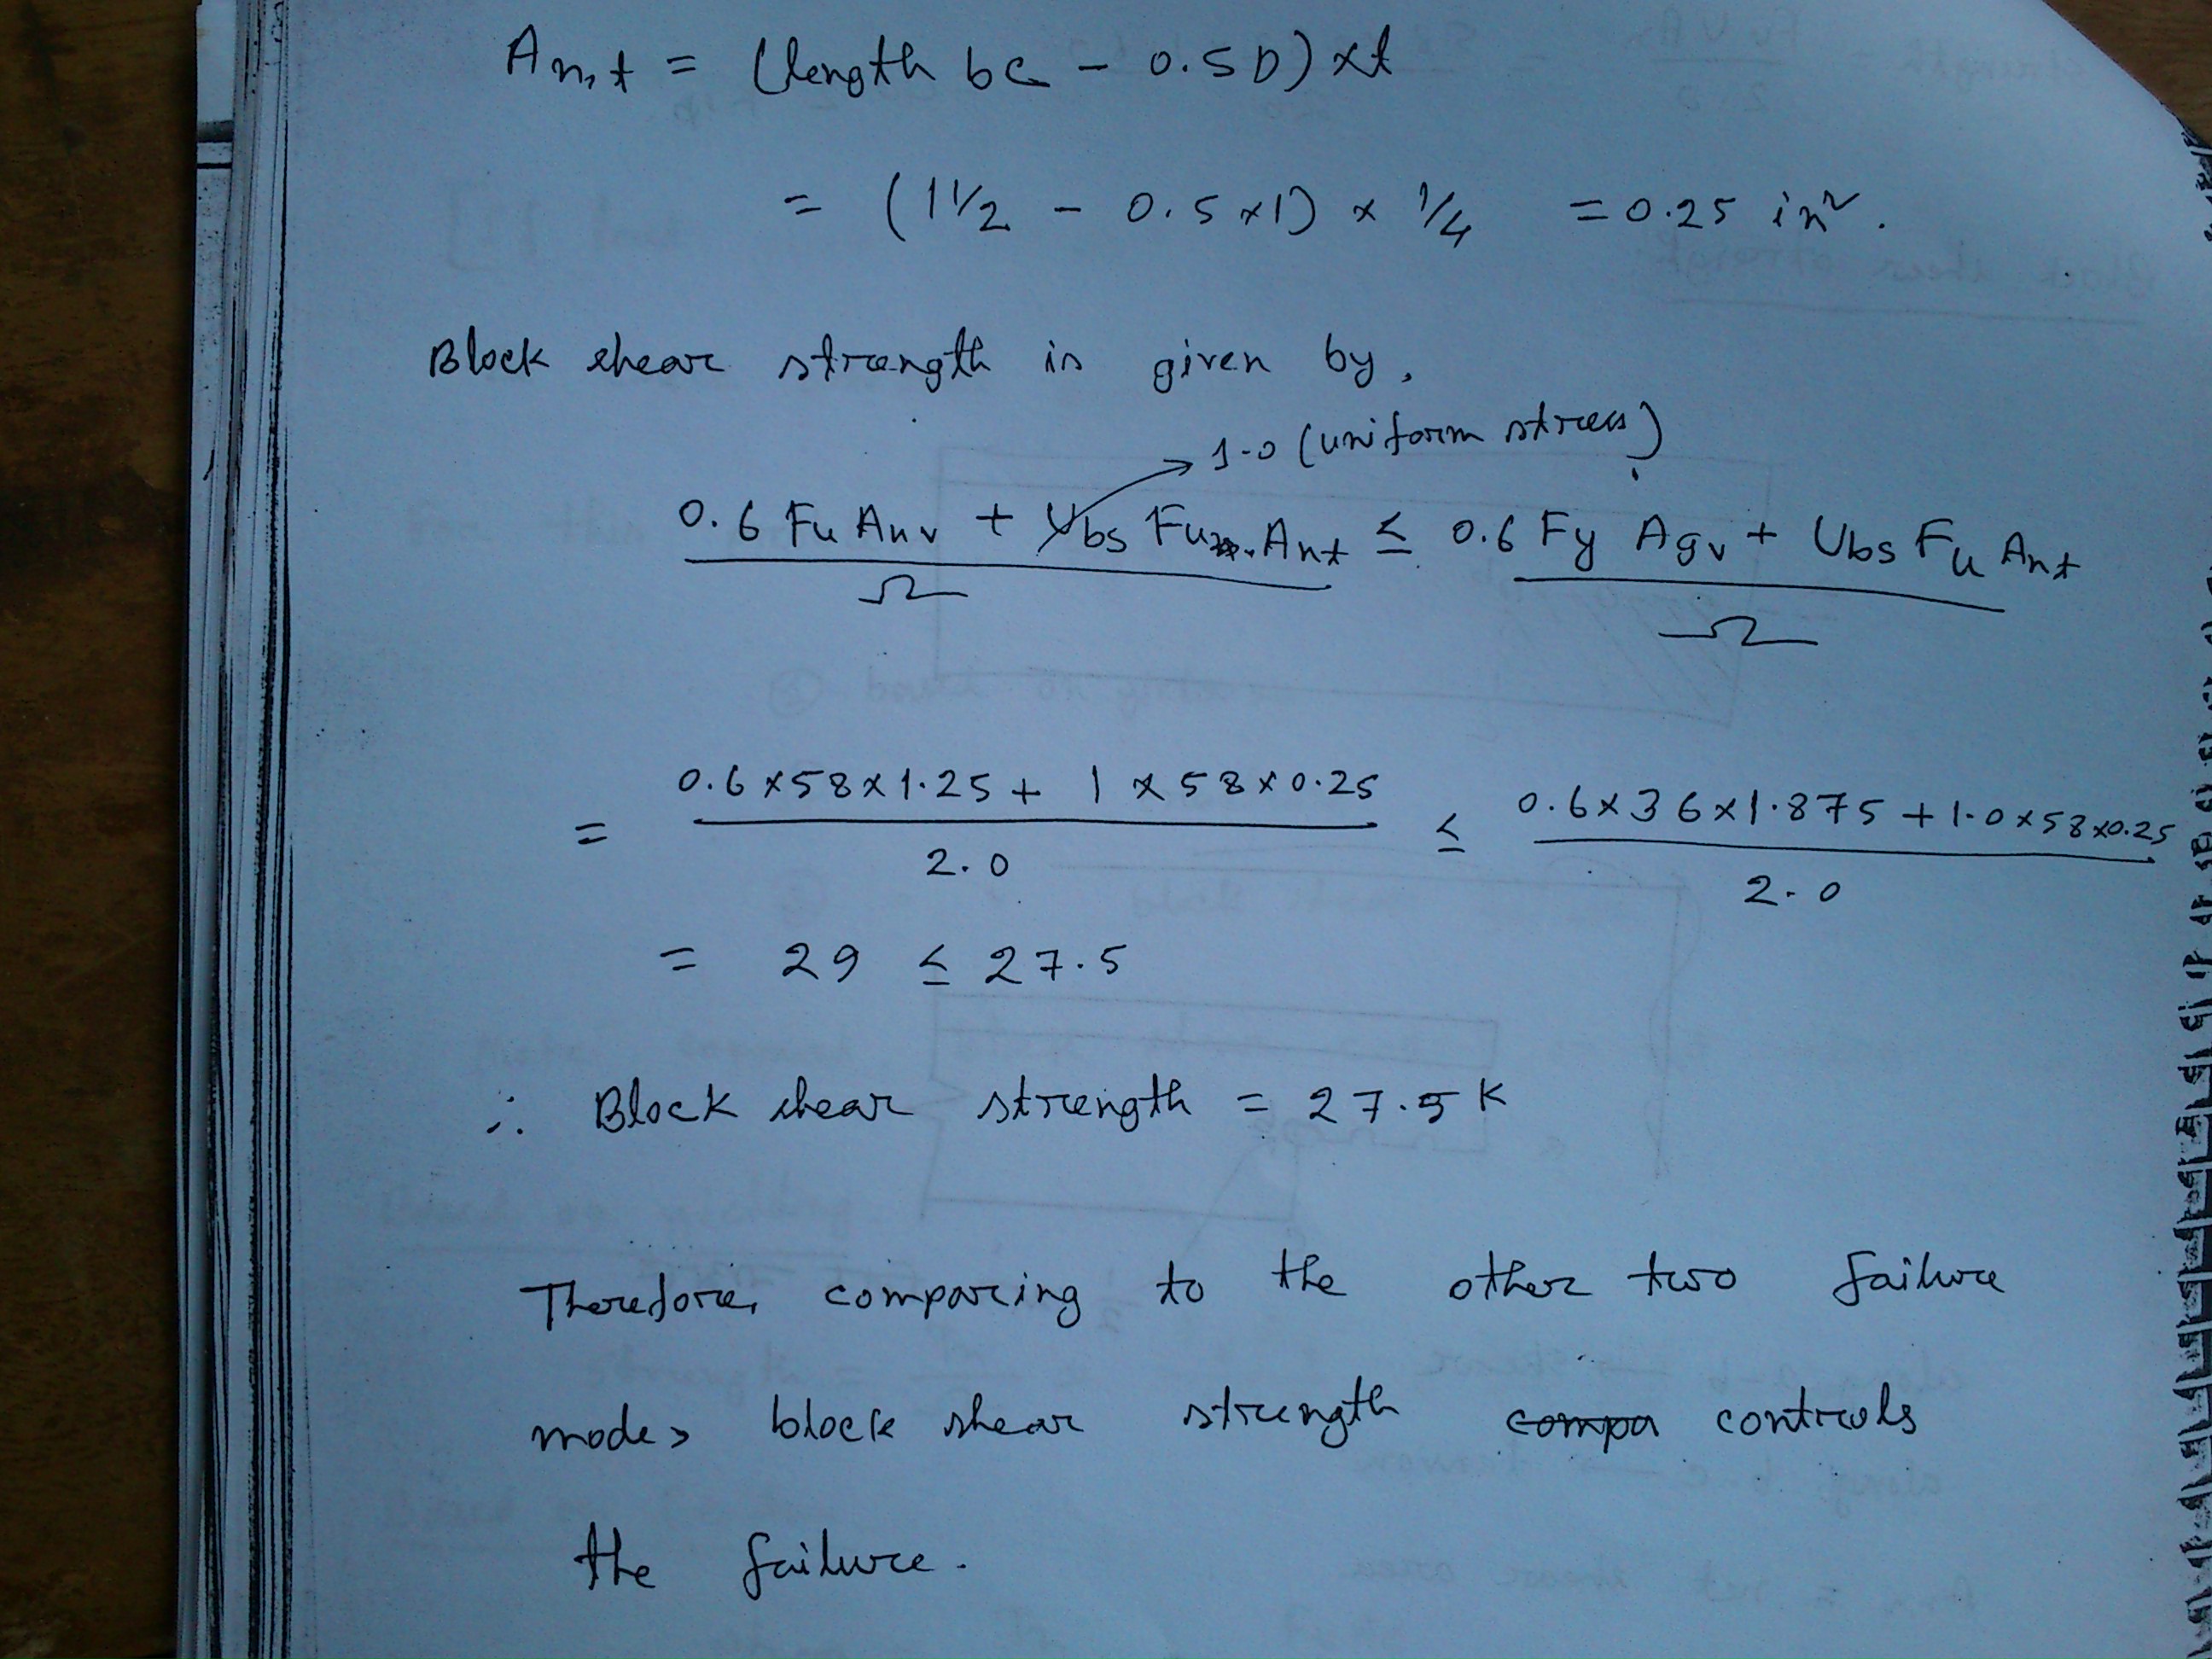 An,t = (length bc - 0.5D) x t
= (1 1/2 - 0.5 x 1) x 1/4 = 0.25 in².
Block shear strength is given by,
1.0 (uniform stress)
0.6 Fu Anv + Ubs Fu Ant ≤ 0.6 Fy Agv + Ubs Fu Ant
Ω Ω
= 0.6 x 58 x 1.25 + 1 x 58 x 0.25 ≤ 0.6 x 36 x 1.875 + 1.0 x 58 x 0.25
2.0 2.0
= 29 ≤ 27.5
∴ Block shear strength = 27.5 K
Therefore, comparing to the other two failure
modes block shear strength compa controls
the failure.